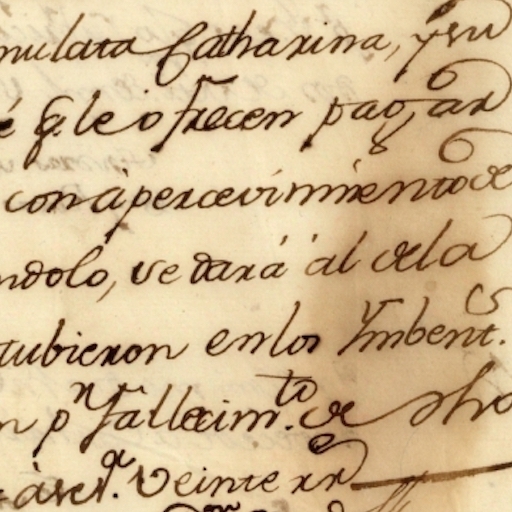 mulata Catharina, y su
é q.e le ofrecen pagar
con apercevimiento de
ndolo, se dará ál dela
tubieron en los Ymbent.s
n p.n fallecim.to de dho
veinte rr